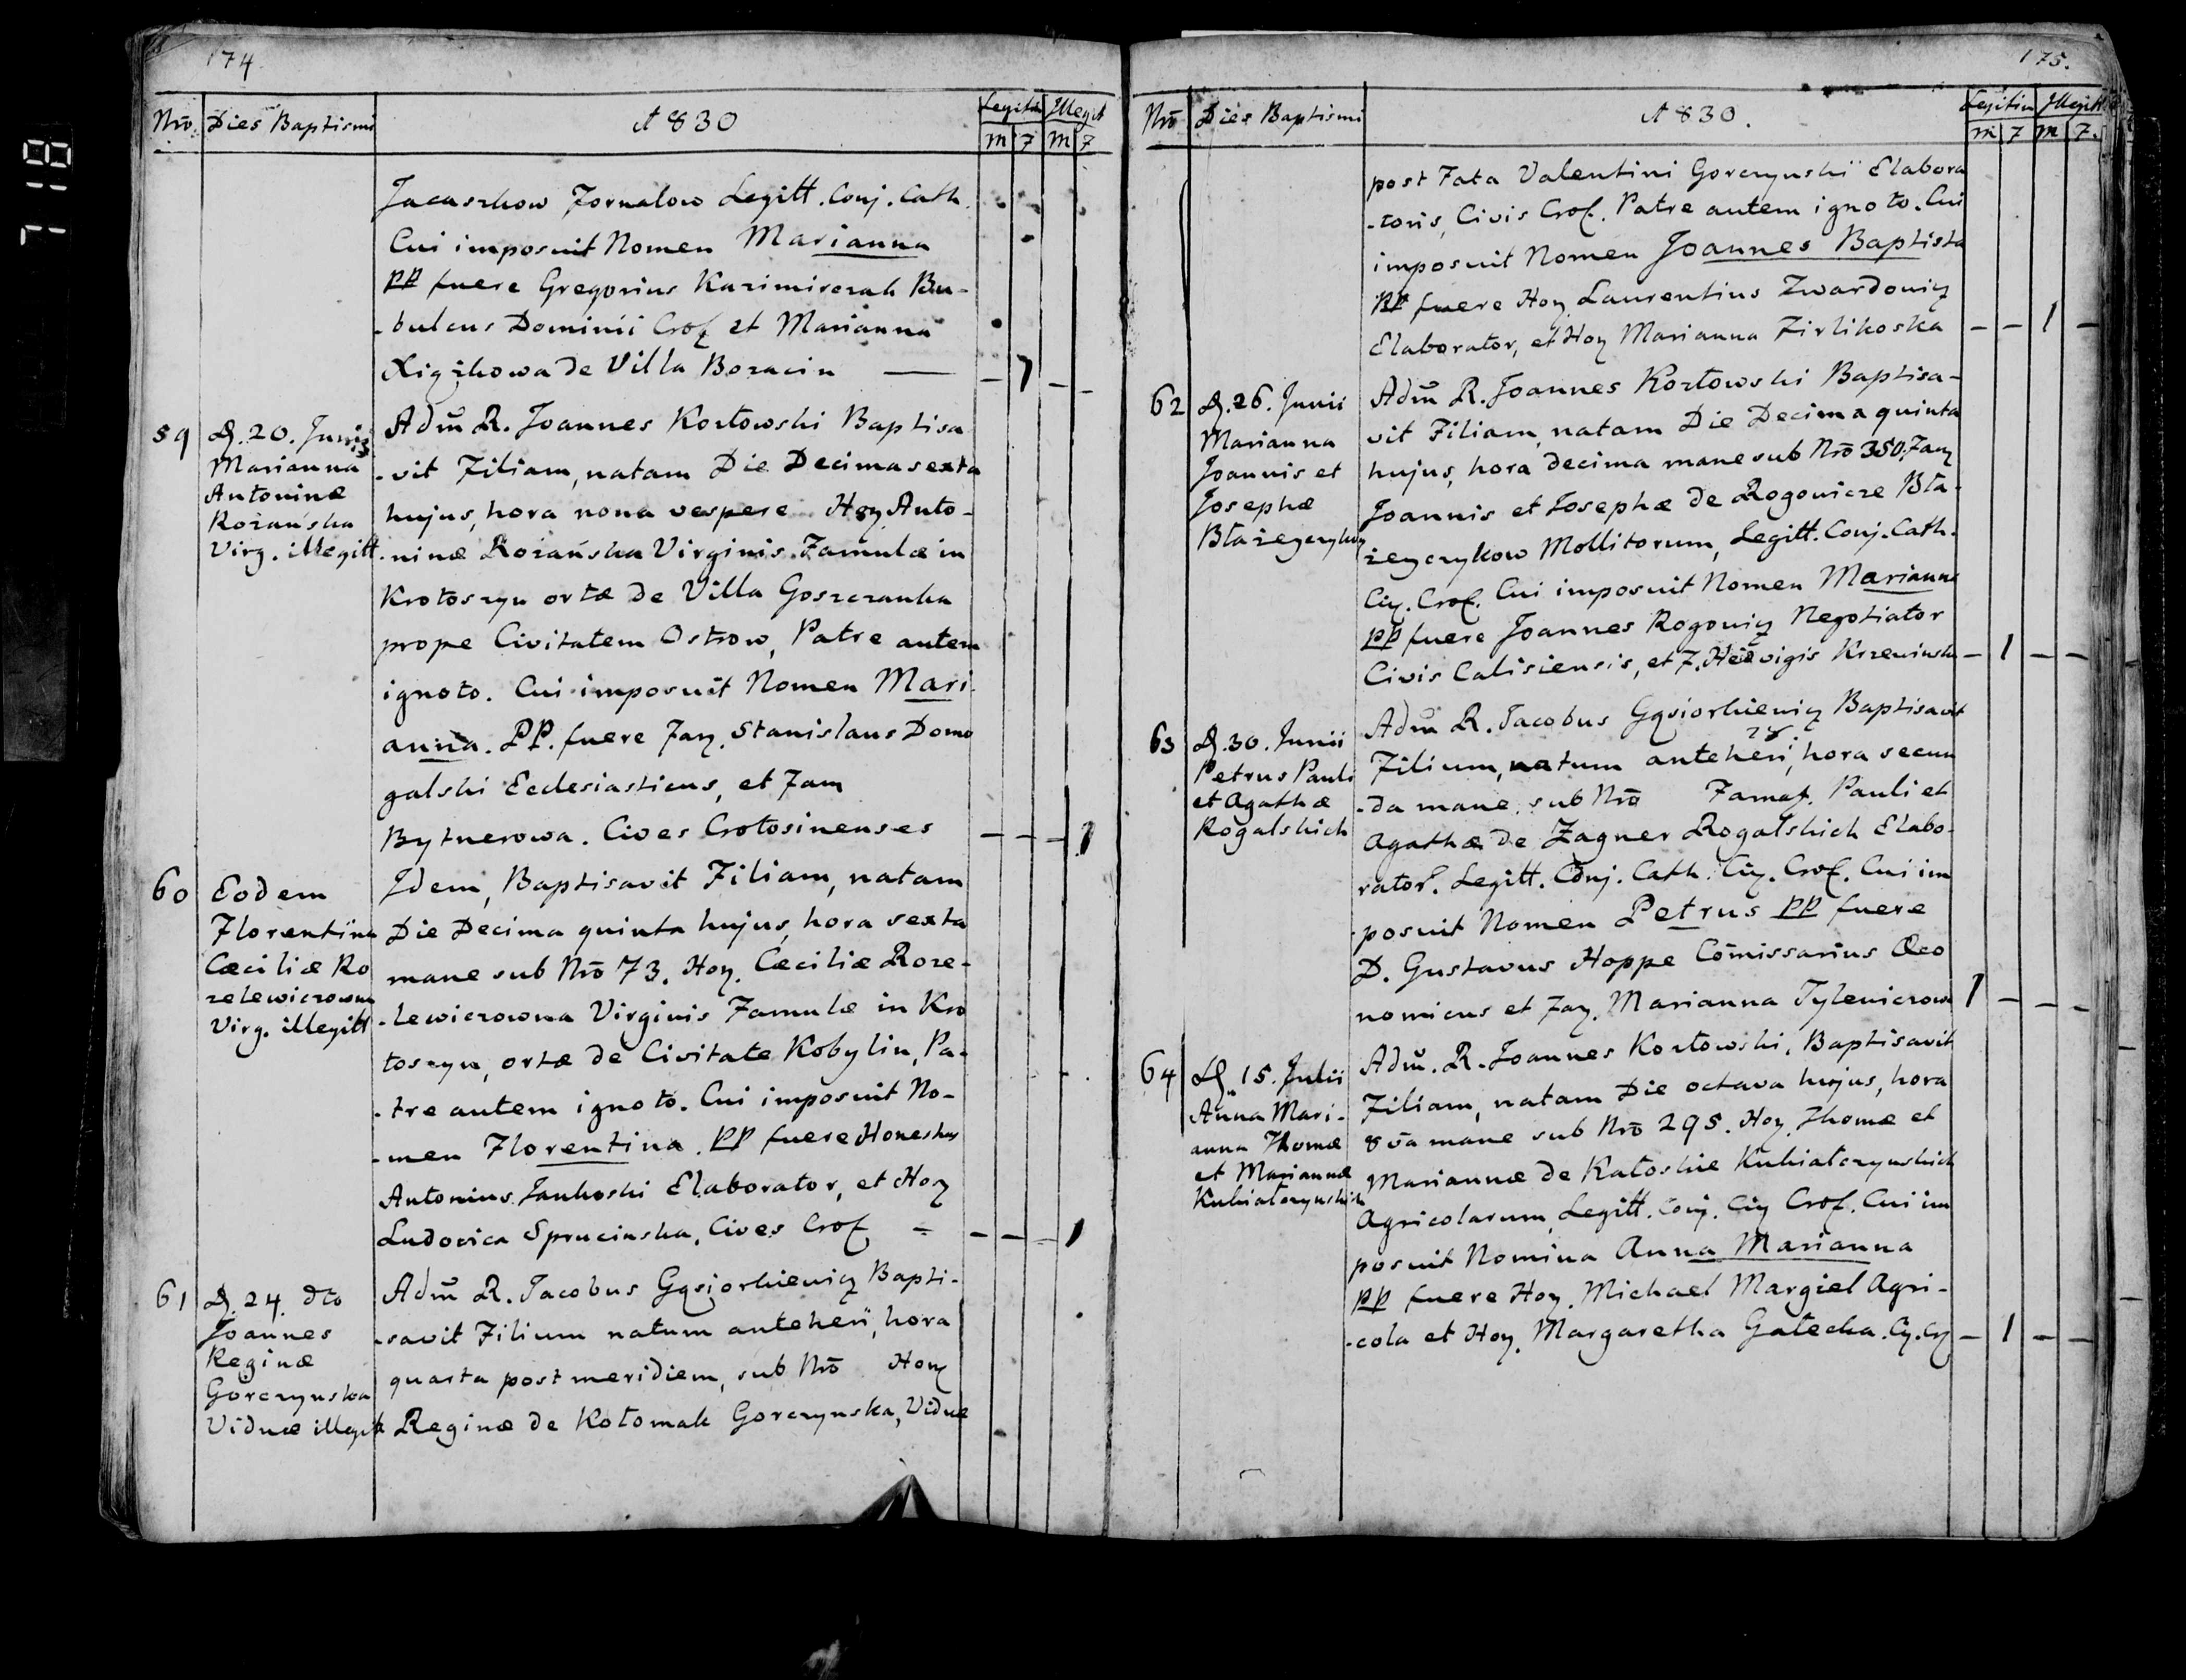 174.
Nrō. Dies Baptismi A 830 Legitt Illegit
m f m f
Jacaszkow Fornalow Legitt. Conj. Cath.
Cui imposuit Nomen Marianna
PP fuere Gregorius Kazimirczak Bu-
-bulcus Dominii Crof et Marianna
Xiążkowa de Villa Boracin — - 1 - -
59 D. 20. Junii
Marianna
Antoninæ
Rożańska
Virg. illegitt.
Adm̄ R. Joannes Kozłowski Baptisa
-vit Filiam, natam Die Decima sexta
hujus, hora nona vespere Hoy Anto-
-ninæ Rożańska Virginis Famulæ in
Krotoszyn ortæ de Villa Goszczanka
prope Civitatem Ostrow, Patre autem
ignoto. Cui imposuit Nomen Mari-
anna. PP. fuere Fay. Stanislaus Domo
galski Ecclesiasticus, et Fam
Bytnerowa. Cives Crotosinenses - - - 1
60 Eodem
Florentina
Cæciliæ Ro
zelewiczowna
Virg. illegitt
Idem, Baptisavit Filiam, natam
Die Decima quinta hujus, hora sexta
mane sub Nrō 73. Hoy. Cæciliæ Roze-
-lewiczowna Virginis Famulæ in Kro
toszyn, ortæ de Civitate Kobylin, Pa-
-tre autem ignoto. Cui imposuit No-
-men Florentina. PP fuere Honestus
Antonius Jankoski Elaborator, et Hoy
Ludovica Sprucinska, Cives Crof = - - - 1
61 D. 24. dto
Joannes
Reginæ
Gorczynska
Viduæ illegitt
Adm̄ R. Jacobus Gąsiorkiewicz Bapti-
-savit Filium natum anteheri, hora
quarta post meridiem, sub Nrō Hoy
Reginæ de Kołomak Gorczynska, Viduæ
175.
Nrō Dies Baptismi A 830. Legitim Illegitt
m f m f.
post Fata Valentini Gorczynski Elabora
-toris, Civis Crof. Patre autem ignoto. Cui
imposuit Nomen Joannes Baptista
PP fuere Hoy Laurentius Zwardowicz
Elaborator, et Hoy Marianna Firlikoska - - 1 -
62 D. 26. Junii
Marianna
Joannis et
Josephæ
Adm̄ R. Joannes Kozłowski Baptisa-
vit Filiam, natam Die Decima quinta
hujus, hora decima mane sub Nrō 350. Fay
Joannis et Josephæ de Rogowicze Bła-
żeyczykow Mollitorum, Legitt. Conj. Cath.
Ciy. Crof. Cui imposuit Nomen Marianna
PP fuere Joannes Rogowicz Negotiator
Civis Calisiensis, et F. Hedvigis Krzewinska - 1 - -
63 D. 30. Junii
Petrus Pauli
et Agathæ
Rogalskich
Adm̄ R. Jacobus Gąsiorkiewicz Baptisavit
28.
Filium, natum anteheri, hora secun
-da mane, sub Nrō Famat. Pauli et
Agathæ de Zagner Rogalskich Elabo-
rator. Legitt. Conj. Cath. Ciy. Crof. Cui im
posuit Nomen Petrus PP fuere
D. Gustavus Hoppe Cōmissarius Oeco
nomicus et Fay. Marianna Tylewiczowa 1 - - -
64 D. 15. Julii
Anna Mari-
anna Thomæ
et Mariannæ
Kubiatczynskich
Adm̄. R. Joannes Kozłowski, Baptisavit
Filiam, natam Die octava hujus, hora
8va mane sub Nrō 295. Hoy. Thomæ et
Mariannæ de Katoskie Kubiatczynskich
Agricolarum, Legitt. Conj. Ciy Crof. Cui im
posuit Nomina Anna Marianna
PP fuere Hoy. Michael Margiel Agri-
-cola et Hoy. Margaretha Gałecka. Cy. Crf - 1 - -